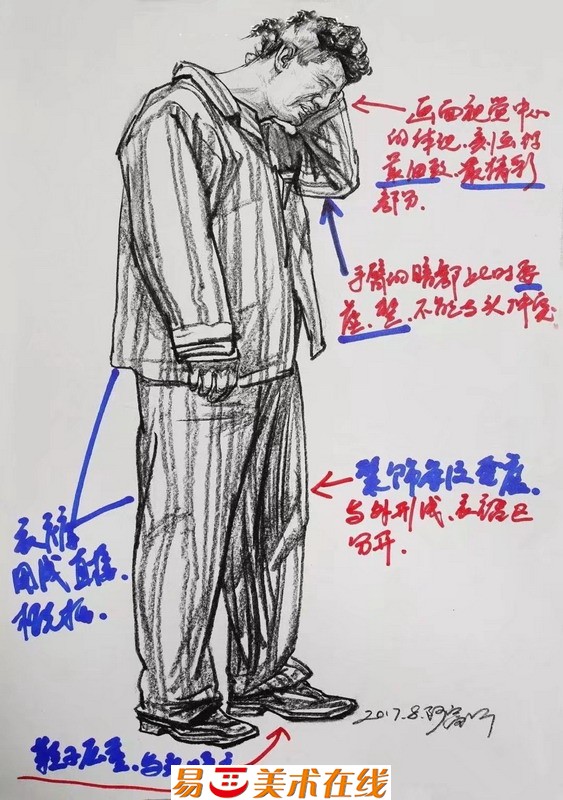 画面视觉中心
的体现.刻画得
最细致.最精彩
部分.
手臂的暗部此时要
虚.整.不能与头冲突.
装饰
与外形线.衣褶区
分开.
衣裤
用线直接.
概括.
鞋子
2017.8.
易美术在线